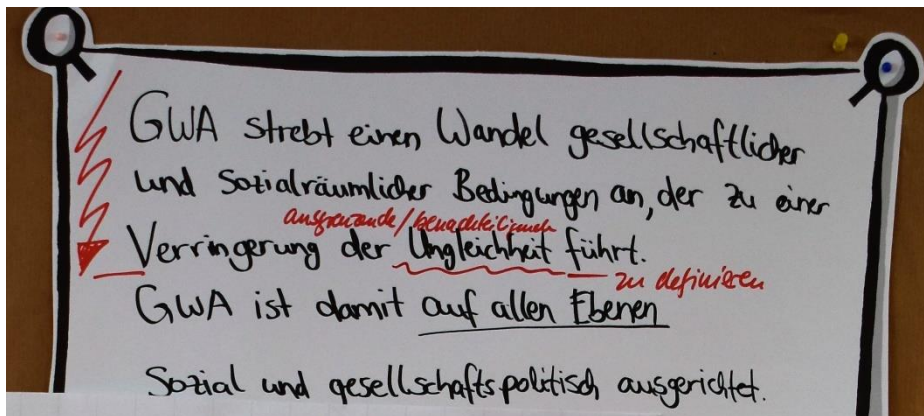 GWA strebt einen Wandel gesellschaftlicher
und Sozialräumlicher Bedingungen an, der zu einer
ausgrenzende/benachteiligende
Verringerung der Ungleichheit führt.
zu definieren
GWA ist damit auf allen Ebenen
Sozial und gesellschaftspolitisch ausgerichtet.